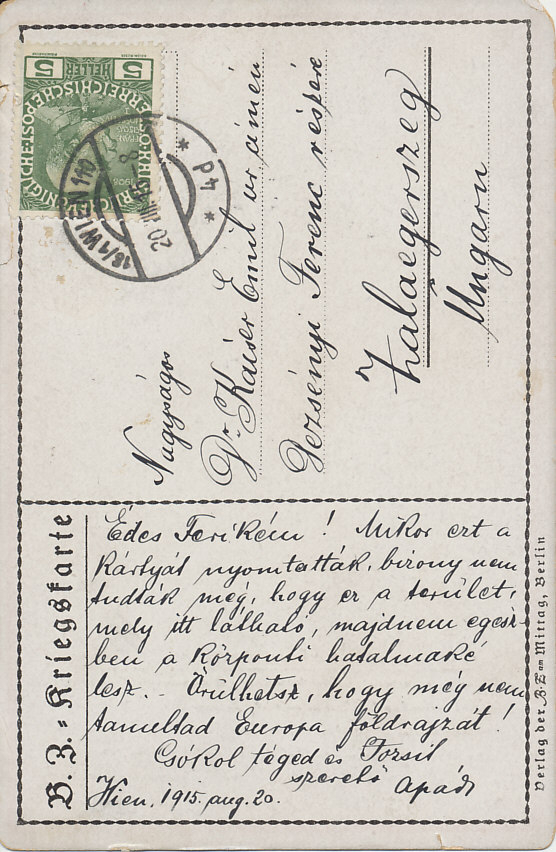 B. Z.=Kriegskarte
Édes Ferikém! Mikor ezt a
kártyát nyomtatták, bizony nem
tudták még, hogy ez a terület,
mely itt látható, majdnem egész-
ben a központi hatalmaké
lesz. - Örülhetsz, hogy még nem
tanultad Európa földrajzát!
Csókol téged és
szerető Apád
Wien, 1915. aug. 20.
Nagyságos
Dr. Kaiser Emil úr címén
Dezsényi Ferenc részére
Zalaegerszeg
Ungarn
5 HELLER 5
18/1 WIEN 110
20. VIII. 15 - 8
* 4d *
Verlag der B.Z. am Mittag, Berlin